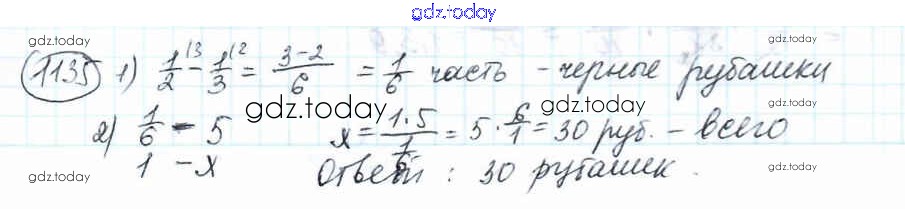 gdz.today
gdz.today gdz.today gdz.today
1135 1) 1/2 (3 - 1/3 (2 = 3-2/6 = 1/6 часть - черные рубашки
gdz.today gdz.today gdz.today
2) 1/6 - 5 x = 1·5/(1/6) = 5 · 6/1 = 30 руб. - всего
1 - x Ответ : 30 рубашек.
gdz.today gdz.today gdz.today